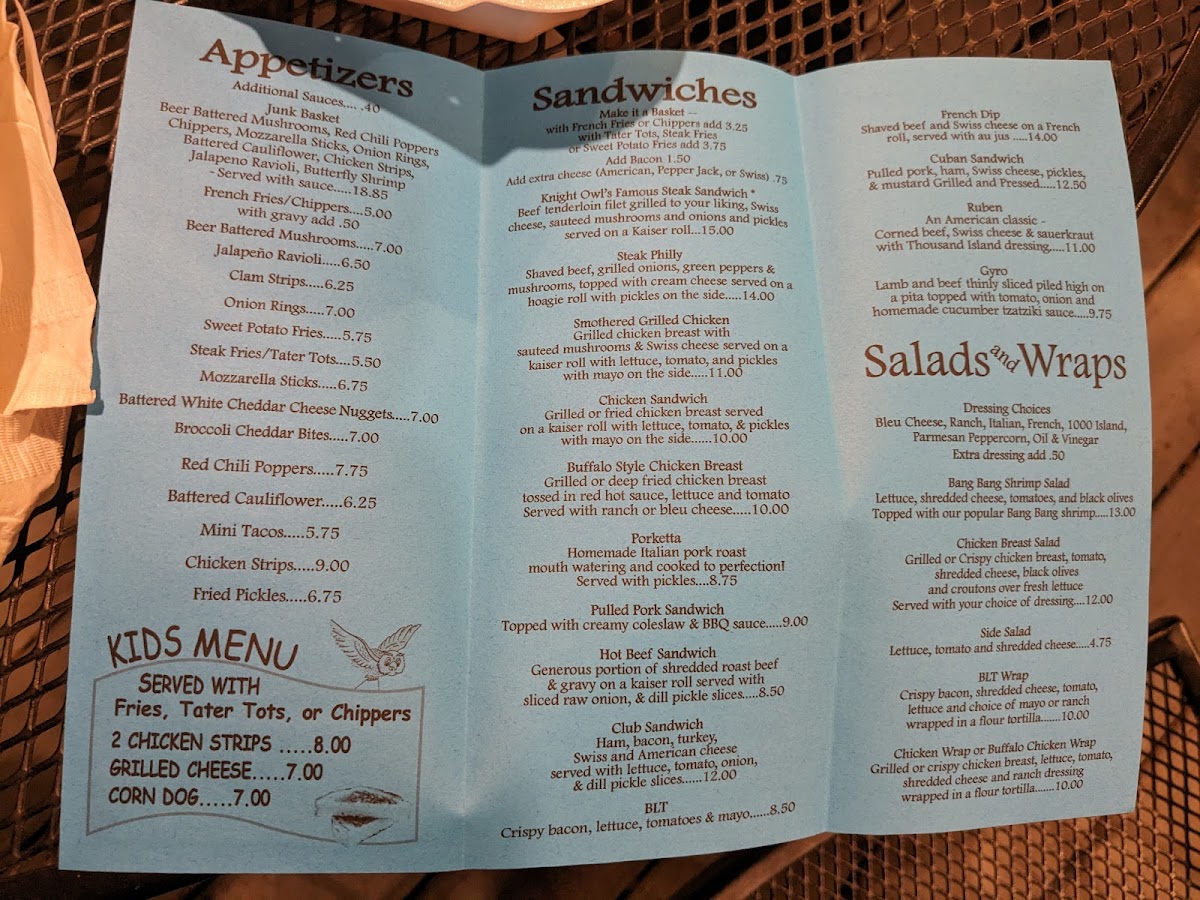 Appetizers
Additional Sauces.... .40
Junk Basket
Beer Battered Mushrooms, Red Chili Poppers
Chippers, Mozzarella Sticks, Onion Rings,
Battered Cauliflower, Chicken Strips,
Jalapeno Ravioli, Butterfly Shrimp
- Served with sauce.....18.85
French Fries/Chippers....5.00
with gravy add .50
Beer Battered Mushrooms.....7.00
Jalapeño Ravioli.....6.50
Clam Strips.....6.25
Onion Rings.....7.00
Sweet Potato Fries.....5.75
Steak Fries/Tater Tots....5.50
Mozzarella Sticks.....6.75
Battered White Cheddar Cheese Nuggets.....7.00
Broccoli Cheddar Bites.....7.00
Red Chili Poppers.....7.75
Battered Cauliflower.....6.25
Mini Tacos.....5.75
Chicken Strips.....9.00
Fried Pickles.....6.75
KIDS MENU
SERVED WITH
Fries, Tater Tots, or Chippers
2 CHICKEN STRIPS .....8.00
GRILLED CHEESE.....7.00
CORN DOG.....7.00
Sandwiches
Make it a Basket --
with French Fries or Chippers add 3.25
with Tater Tots, Steak Fries
or Sweet Potato Fries add 3.75
Add Bacon 1.50
Add extra cheese (American, Pepper Jack, or Swiss) .75
Knight Owl's Famous Steak Sandwich *
Beef tenderloin filet grilled to your liking, Swiss
cheese, sauteed mushrooms and onions and pickles
served on a Kaiser roll...15.00
Steak Philly
Shaved beef, grilled onions, green peppers &
mushrooms, topped with cream cheese served on a
hoagie roll with pickles on the side.....14.00
Smothered Grilled Chicken
Grilled chicken breast with
sauteed mushrooms & Swiss cheese served on a
kaiser roll with lettuce, tomato, and pickles
with mayo on the side.....11.00
Chicken Sandwich
Grilled or fried chicken breast served
on a kaiser roll with lettuce, tomato, & pickles
with mayo on the side......10.00
Buffalo Style Chicken Breast
Grilled or deep fried chicken breast
tossed in red hot sauce, lettuce and tomato
Served with ranch or bleu cheese.....10.00
Porketta
Homemade Italian pork roast
mouth watering and cooked to perfection!
Served with pickles....8.75
Pulled Pork Sandwich
Topped with creamy coleslaw & BBQ sauce.....9.00
Hot Beef Sandwich
Generous portion of shredded roast beef
& gravy on a kaiser roll served with
sliced raw onion, & dill pickle slices.....8.50
Club Sandwich
Ham, bacon, turkey,
Swiss and American cheese
served with lettuce, tomato, onion,
& dill pickle slices......12.00
BLT
Crispy bacon, lettuce, tomatoes & mayo......8.50
French Dip
Shaved beef and Swiss cheese on a French
roll, served with au jus .....14.00
Cuban Sandwich
Pulled pork, ham, Swiss cheese, pickles,
& mustard Grilled and Pressed.....12.50
Ruben
An American classic -
Corned beef, Swiss cheese & sauerkraut
with Thousand Island dressing.....11.00
Gyro
Lamb and beef thinly sliced piled high on
a pita topped with tomato, onion and
homemade cucumber tzatziki sauce.....9.75
Salads and Wraps
Dressing Choices
Bleu Cheese, Ranch, Italian, French, 1000 Island,
Parmesan Peppercorn, Oil & Vinegar
Extra dressing add .50
Bang Bang Shrimp Salad
Lettuce, shredded cheese, tomatoes, and black olives
Topped with our popular Bang Bang shrimp....13.00
Chicken Breast Salad
Grilled or Crispy chicken breast, tomato,
shredded cheese, black olives
and croutons over fresh lettuce
Served with your choice of dressing....12.00
Side Salad
Lettuce, tomato and shredded cheese.....4.75
BLT Wrap
Crispy bacon, shredded cheese, tomato,
lettuce and choice of mayo or ranch
wrapped in a flour tortilla.......10.00
Chicken Wrap or Buffalo Chicken Wrap
Grilled or crispy chicken breast, lettuce, tomato,
shredded cheese and ranch dressing
wrapped in a flour tortilla.......10.00